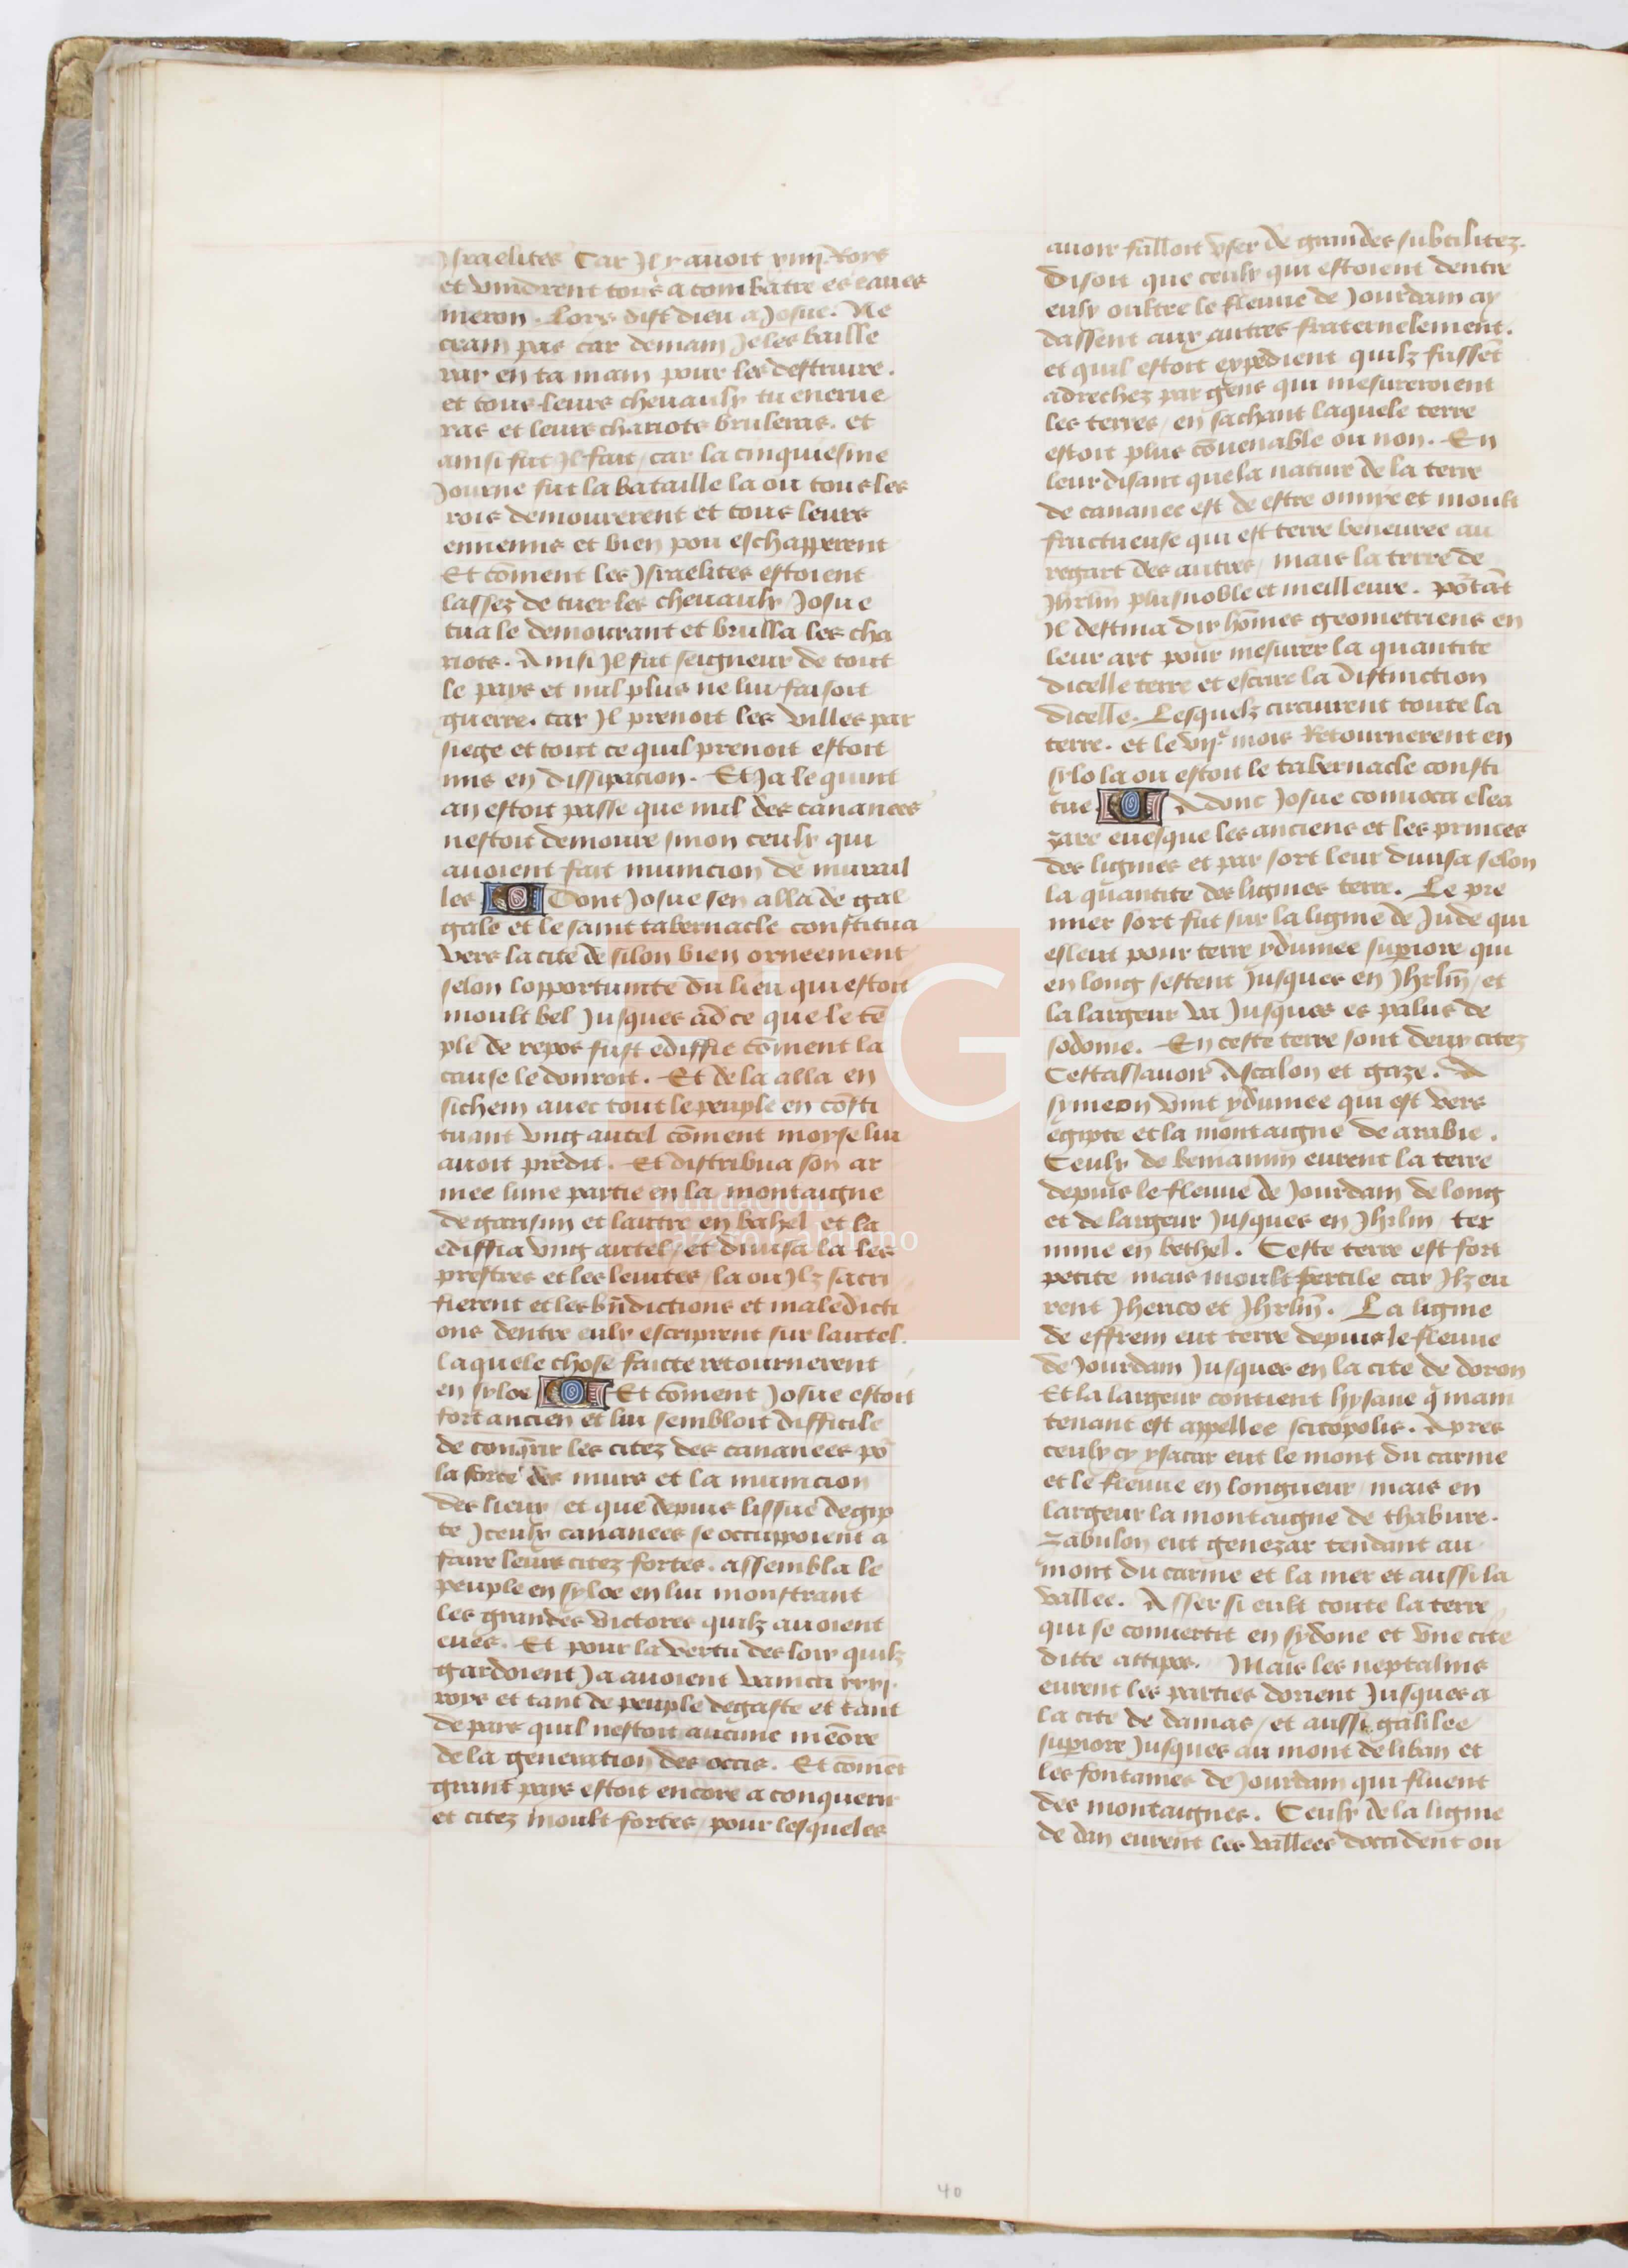 Israelites Car Il y auoit xxiiij. Roys
et vindrent tous a combatre es eaues
meron. Lors dist dieu a Josue. Ne
crain pas car demain Je les baille
ray en ta main pour les destruire.
et tous leurs cheuaulx tu enerue
ras et leurs chariots bruleras. et
ainsi fut Il fait / car la cinquiesme
Journe fut la bataille la ou tous les
rois demourerent et tous leurs
ennemis et bien pou eschapperent
Et cōment les Israelites estoient
lassez de tuer les cheuaulx / Josue
tua le demourant et brulla les cha
riots. Ainsi Il fut seigneur de tout
le pays et nul plus ne lui faisoit
guerre. car Il prenoit les villes par
siege et tout ce quil prenoit estoit
mis en dissipacion. Et Ja le quint
an estoit passe que nul des cananees
nestoit demoure sinon ceulx qui
auoient fait municion de murail
les Dont Josue sen alla de gal
gale et le saint tabernacle constitua
vers la cite de silon bien orneement
selon lopportunite du lieu qui estoit
moult bel Jusques ad ce que le tē
ple de repos fust ediffie cōment la
cause le donroit. Et de la alla en
sichem auec tout le peuple en cōsti
tuant vng autel cōment moyse lui
auoit predit. Et distribua son ar
mee lune partie en la montaigne
de garisim et lautre en bahel et la
ediffia vng autel / et diuisa la les
prestres et les leuites / la ou Ilz sacri
fierent et les bn̄dictions et maledicti
ons dentre eulx escriprent sur lautel.
laquele chose faicte retournerent
en syloe Et cōment Josue estoit
fort ancien et lui sembloit difficile
de conq̄rir les citez des cananees po
la force des murs et la municion
des lieux / et que depuis lissue degip
te Iceulx cananees se occuppoient a
faire leurs citez fortes. assembla le
peuple en syloe en lui monstrant
les grandes victores quilz auoient
eues. Et pour la vertu des loix quilz
gardoient Ja auoient vaincu xxxj.
roys et tant de peuple degaste et tant
de pays quil nestoit aucune mēore
de la generation des occis. Et comēt
grant pays estoit encore a conquerir
et citez moult fortes / pour lesqueles
auoir falloit vser de grandes subtilitez.
disoit que ceulx qui estoient dentre
eulx oultre le fleuue de Jourdam ay
dassent aux autres fraternelement.
et quil estoit expedient quilz fussēt
adrechez par gens qui mesureroient
les terres / en sachant laquele terre
estoit plus cōuenable ou non. En
leur disant que la nature de la terre
de cananee est de estre onnye et moult
fructueuse qui est terre beneuree au
regart des autres / mais la terre de
Jhrlm̄ plus noble et meilleure. pōtāt
Il destina dix hōmes geometriens en
leur art pour mesurer la quantite
dicelle terre et escrire la distinction
dicelle. Lesquelz circuirent toute la
terre. et le vijᵉ mois Retournerent en
sylo la ou estoit le tabernacle consti
tue Adonc Josue conuoca elea
zare euesque les anciens et les princes
des lignies et par sort leur diuisa selon
la quantite des lignies terre. Le pre
mier sort fut sur la lignie de Jude qui
esleut pour terre ydumee supiore qui
en long sestent Jusques en Jhrlm̄ / et
la largeur va Jusques es palus de
sodome. En ceste terre sont deux citez
Cestassauoir Ascalon et gaze. A
symeon vint ydumee qui est vers
egipte et la montaigne de arabie.
Ceulx de beniamin eurent la terre
depuis le fleuue de Jourdam de long
et de largeur Jusques en Jhrlm / ter
mine en bethel. Ceste terre est fort
petite mais moult fertile car Ilz eu
rent Jherico et Jhrlm̄. La lignie
de effrem eut terre depuis le fleuue
de Jourdam Jusques en la cite de doron
Et la largeur contient lysane q̄ main
tenant est appellee scitopolis. Apres
ceulx cy ysacar eut le mont du carme
et le fleuue en longueur / mais en
largeur la montaigne de thabure.
Zabulon eut genezar tendant au
mont du carme et la mer et aussi la
vallee. Asser si eult toute la terre
qui se conuertit en sydone et vne cite
ditte attipes. Mais les neptalins
eurent les parties dorient Jusques a
la cite de damas / et aussi galilee
supiore Jusques au mont de liban et
les fontaines de Jourdam qui fluent
des montaignes. Ceulx de la lignie
de dan eurent les vallees doccident ou
LG
Fundación
Lázaro Galdiano
40